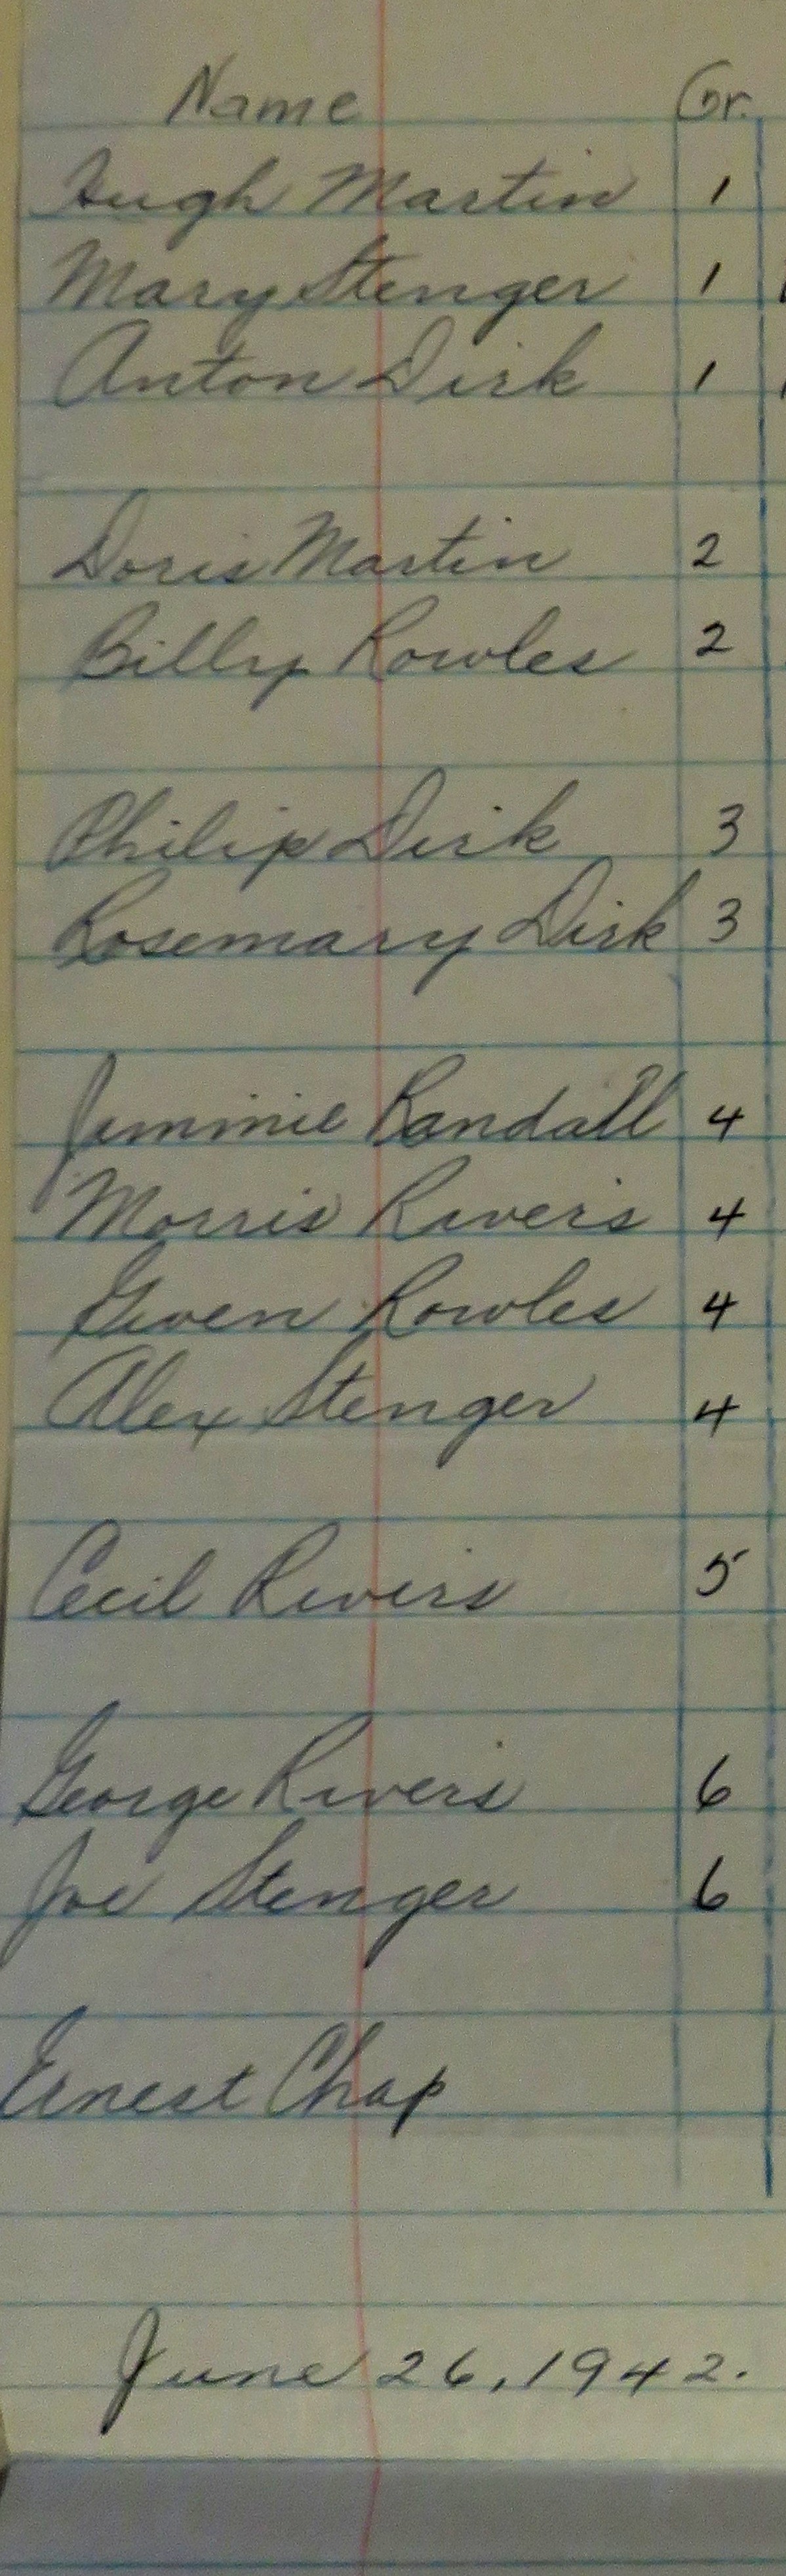 Name Gr.
Hugh Martin 1
Mary Stenger 1
Anton Dirk 1
Doris Martin 2
Billy Rowles 2
Philip Dirk 3
Rosemary Dirk 3
Jimmie Randall 4
Morris Rivers 4
Gwen Rowles 4
Alex Stenger 4
Cecil Rivers 5
George Rivers 6
Joe Stenger 6
Ernest Chap
June 26, 1942.